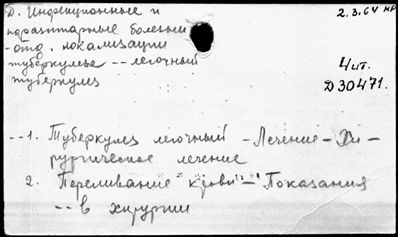 Д. Инфекционные и
паразитарные болезни
- отд. локализации
туберкулеза -- легочный
туберкулез
2.3.64 нр
4 ит.
Д30471.
-- 1. Туберкулез легочный - Лечение - Хи -
рургическое лечение
2. Переливание крови - Показания
-- в хирургии